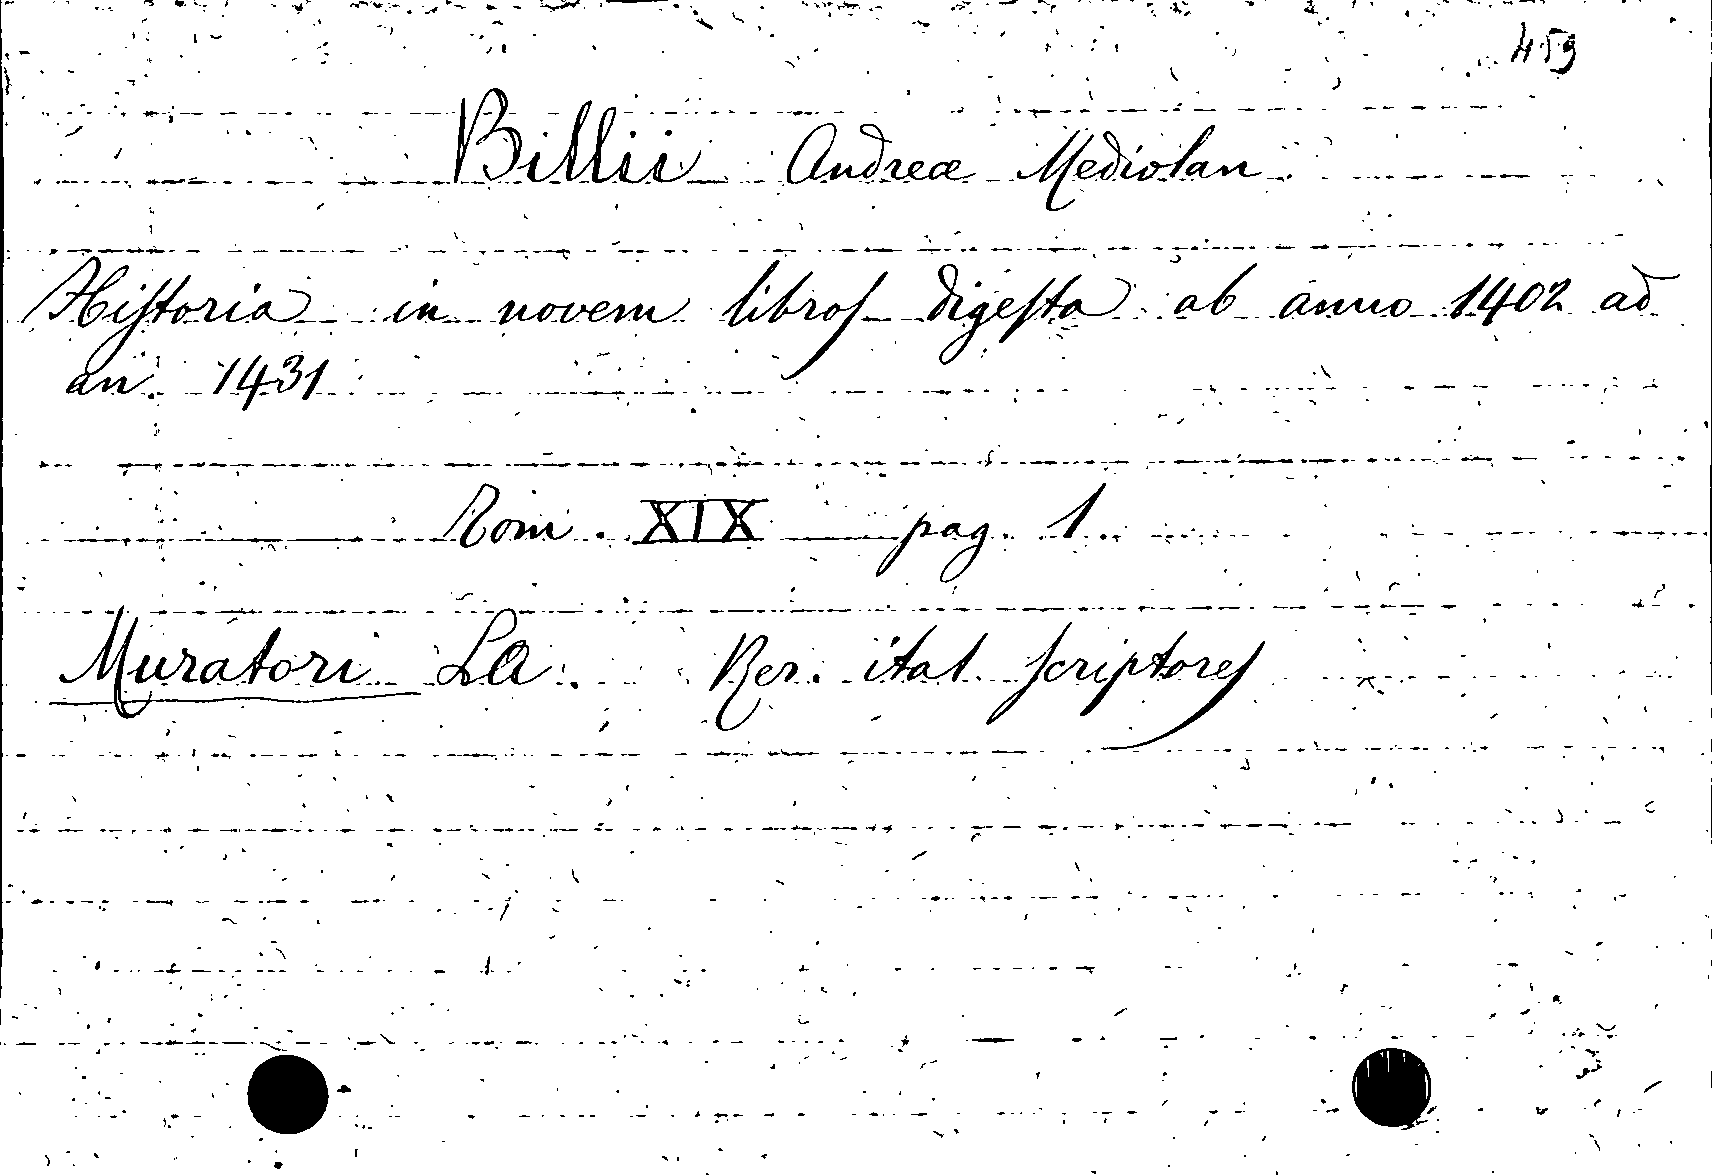 459
Billii Andreæ Mediolan
Hiſtoria in novem libroſ digeſta ab anno 1402 ad
an. 1431
Tom. XIX pag. 1.
Muratori LA. Rer. ital. ſcriptoreſ